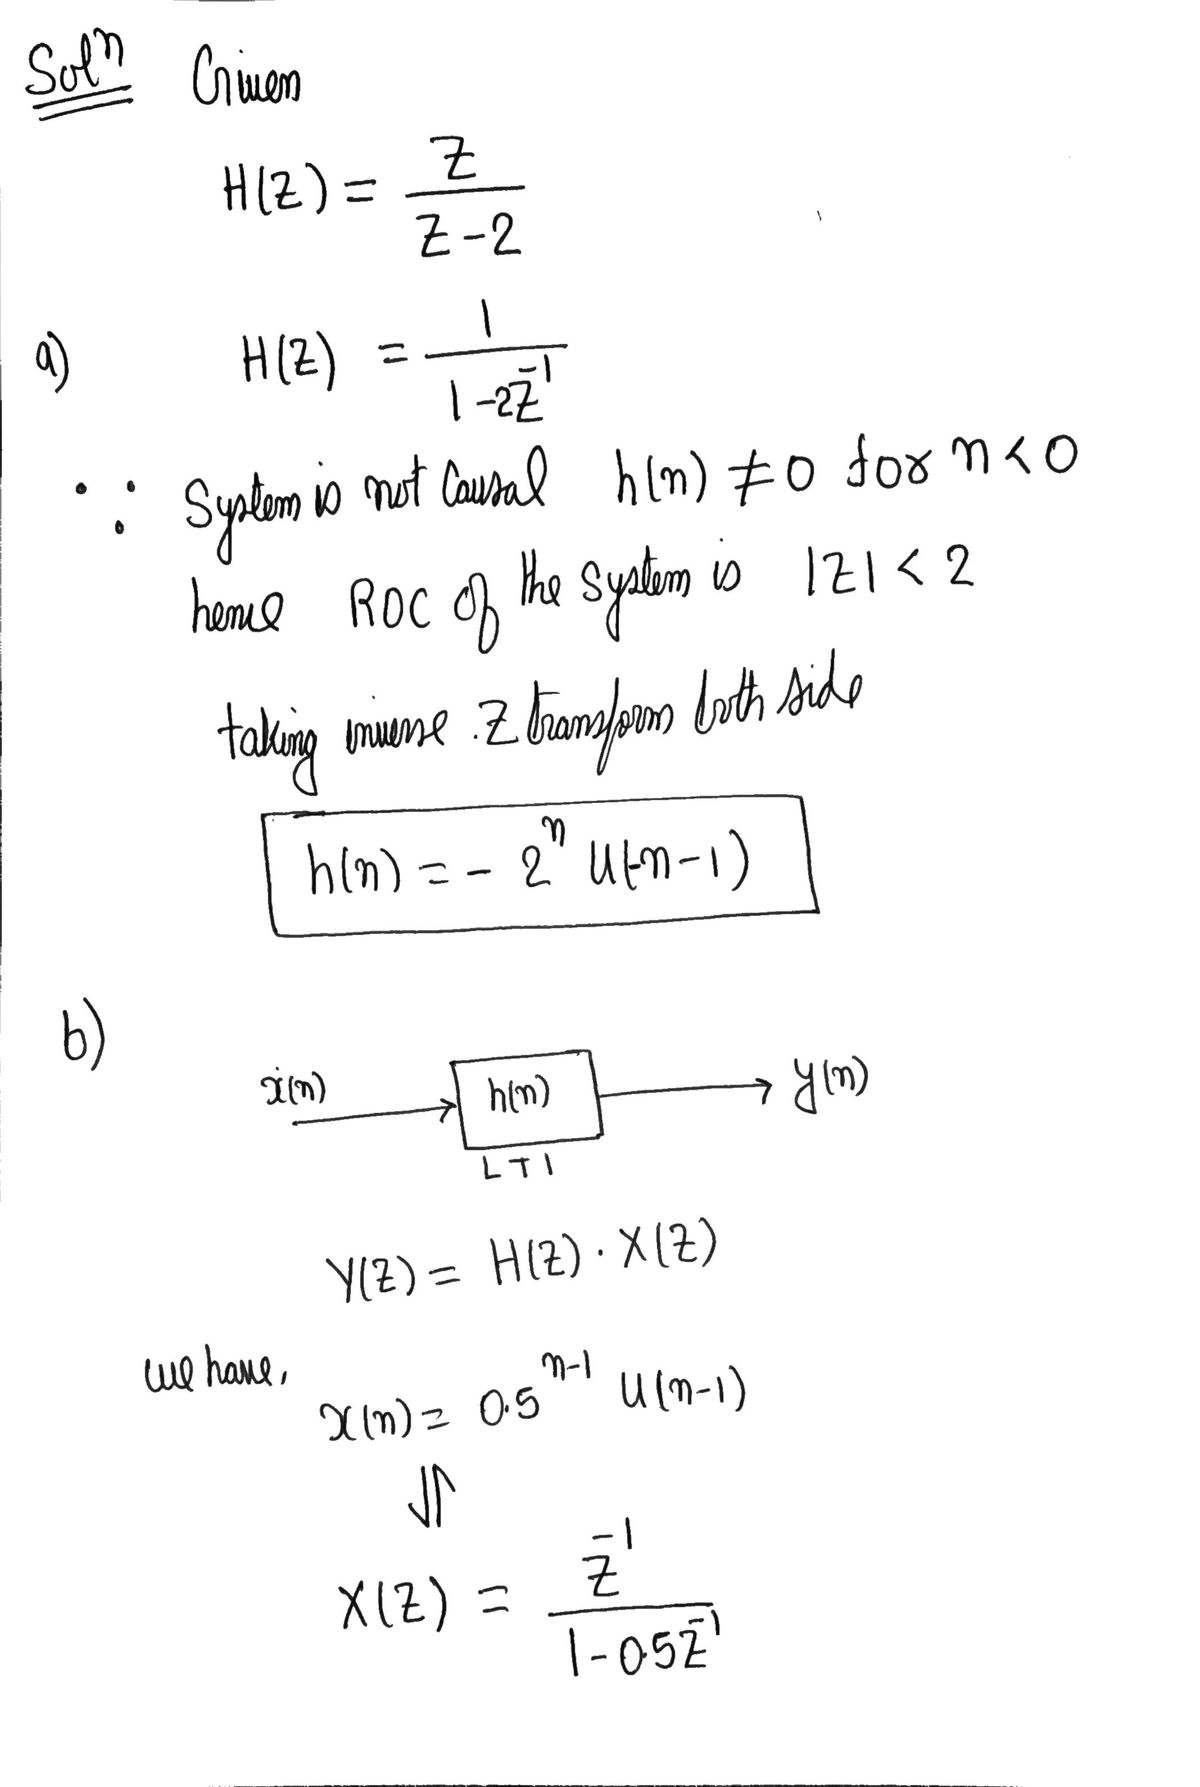 Solⁿ Given
H(Z) = Z / Z-2
a) H(Z) = 1 / 1-2Z⁻¹
∵ System is not Causal h(n) ≠ 0 for n<0
hence ROC of the system is |Z| < 2
taking inverse Z transform both side
h(n) = - 2ⁿ U(-n-1)
b)
x(n) h(n) y(n)
LTI
Y(Z) = H(Z) · X(Z)
we have,
x(n) = 0.5ⁿ⁻¹ U(n-1)
⇃↾
X(Z) = Z⁻¹ / 1-0.5Z⁻¹